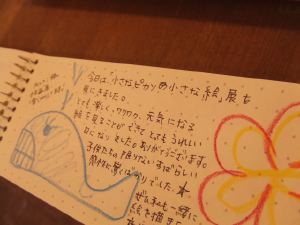 今日は「小さなピカソの小さな絵」展を
見にきました。
とても楽しく、ワクワク、元気になる
絵を見ることができて とてもうれしい
日になりました。ありがとうございます。
子供たちの限りないすばらしい
感性に驚くばかりでした。
ぜんまんも一緒に
絵を描きま